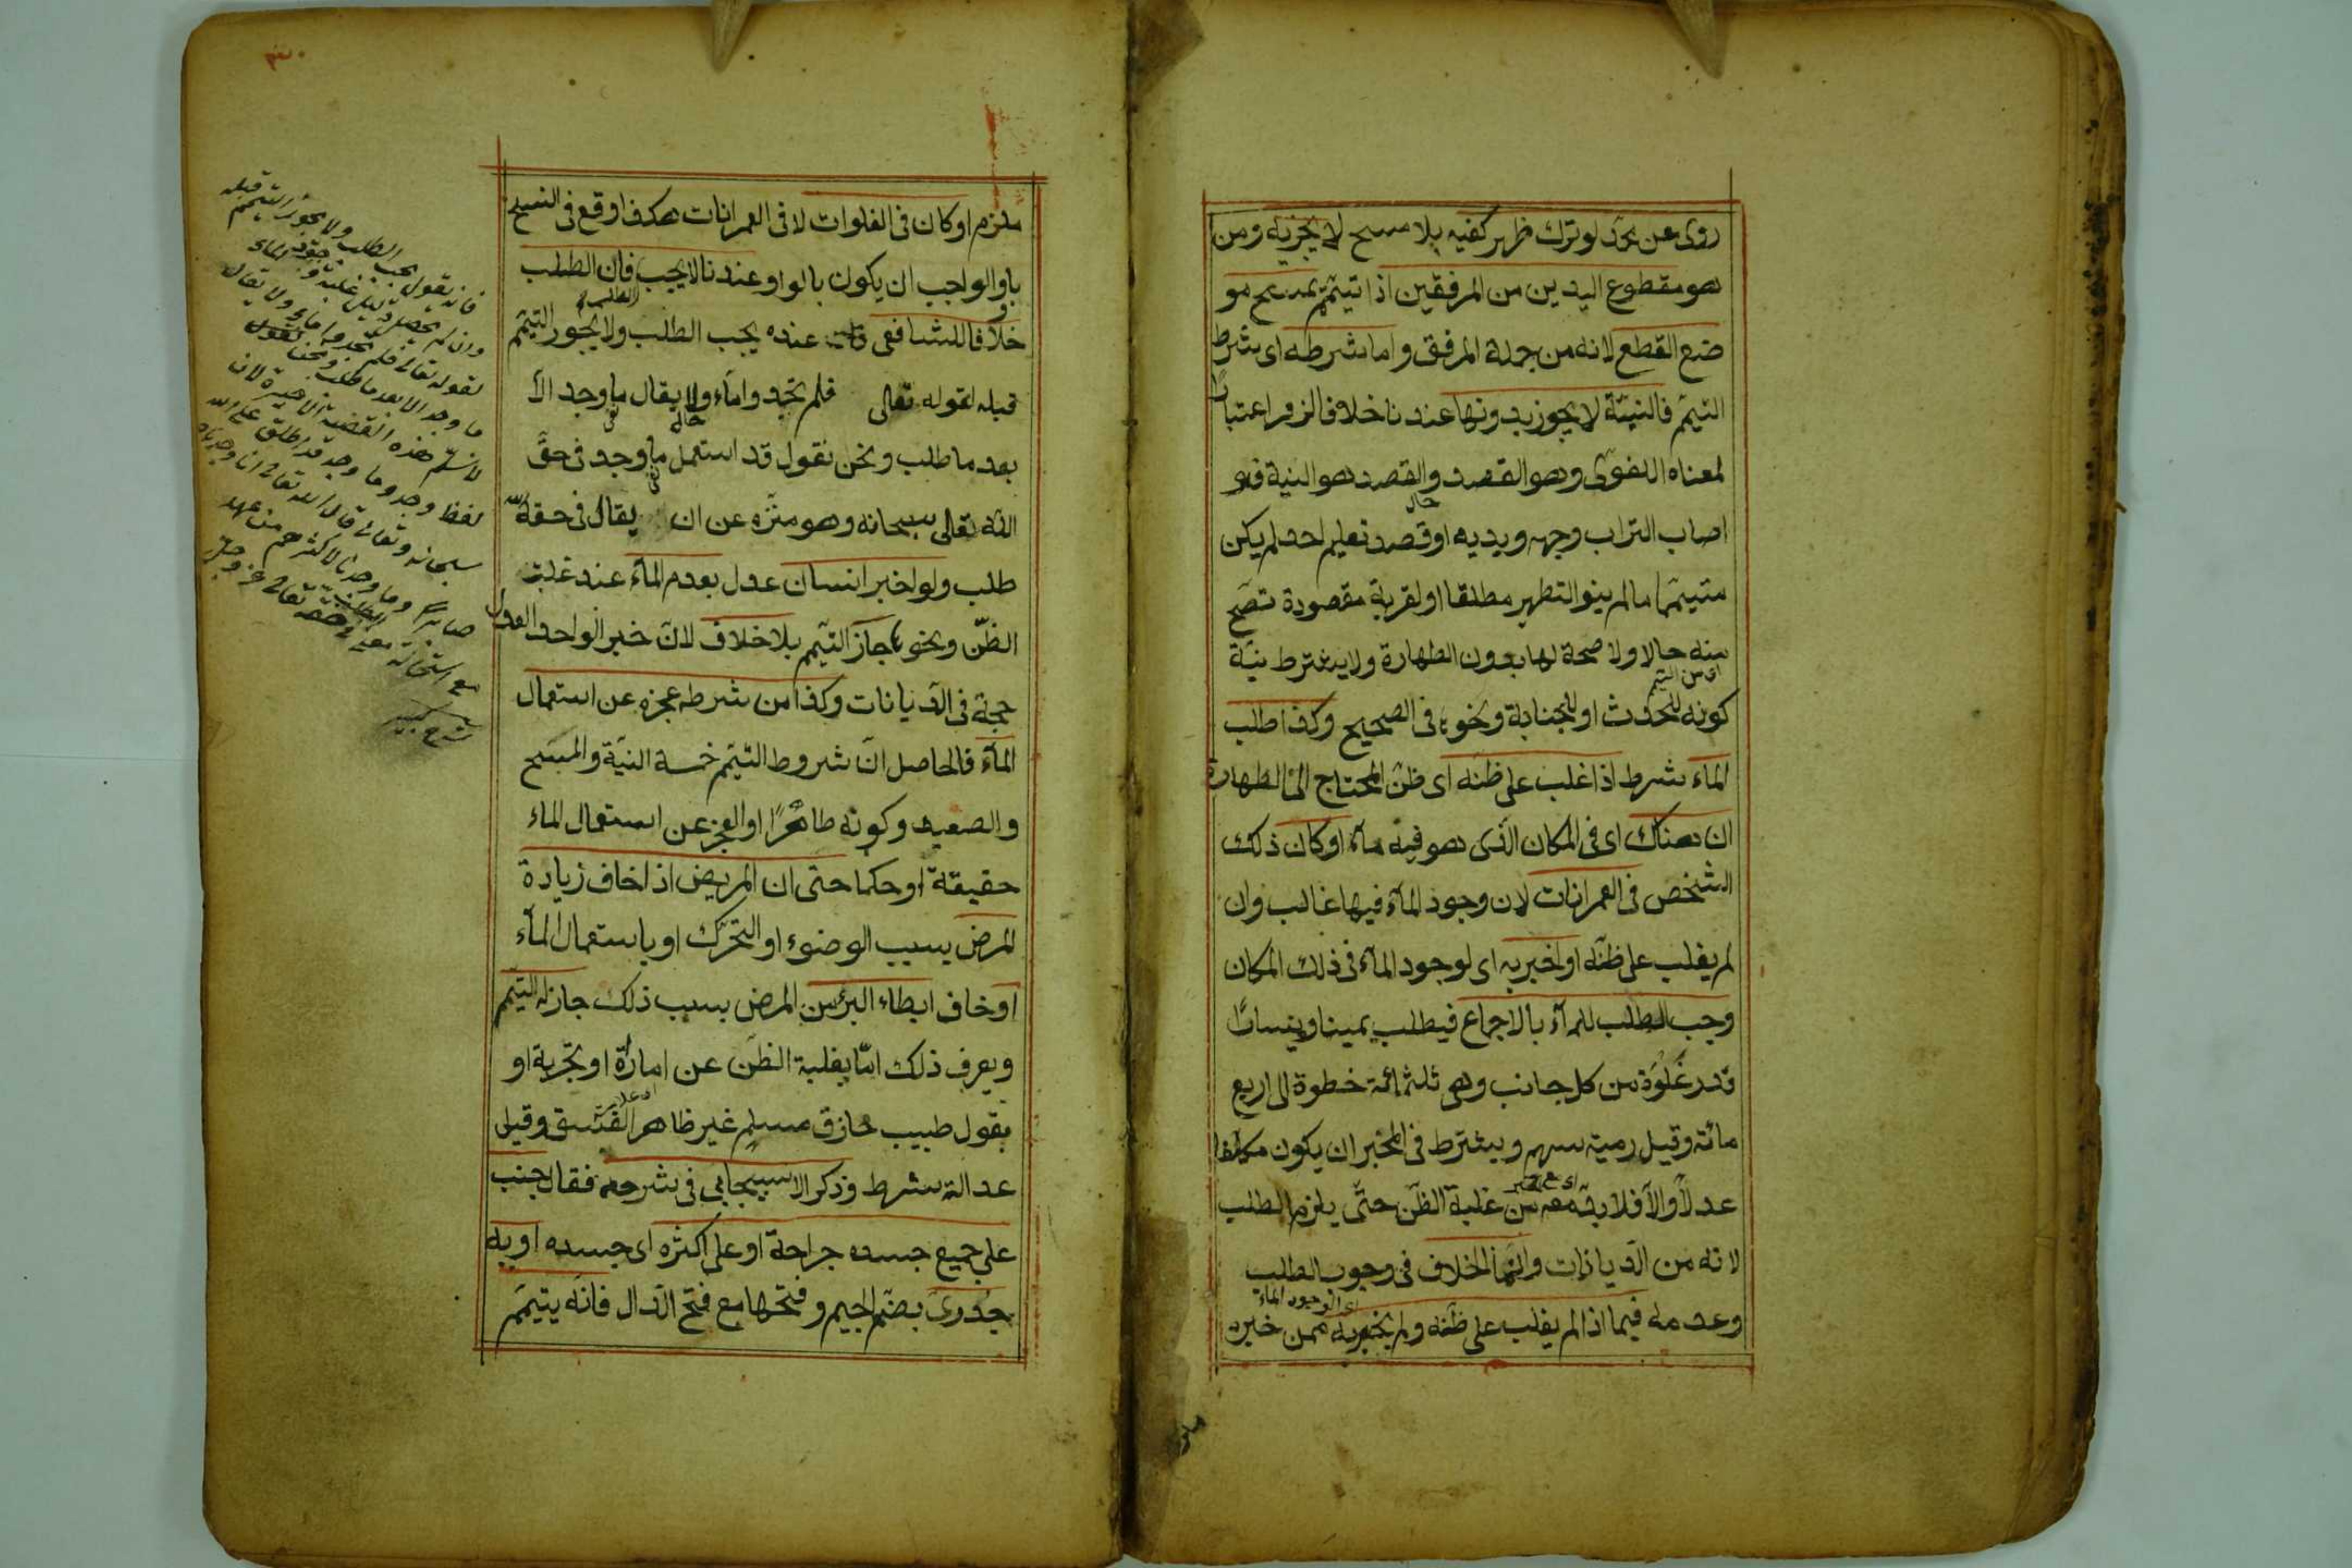 روى عن محمد لو ترك ظهر كفيه بلا مسح لا يجزيه ومن
هو مقطوع اليدين من المرفقين اذا تيمم يمسح مو
ضع القطع لانه من جملة المرفق واما شرطه اى شرط
التيمم فالنية لا يجوز بدونها عندنا خلافا لزفر اعتبارا
لمعناه اللغوى وهو القصد والقصد هو النية فلو
اصاب التراب وجهه ويديه او قصد تعليم احد لم يكن
متيمما ما لم ينو التطهير مطلقا او لقربة مقصودة تصح
منه حالا ولا صحة لها بدون الطهارة ولا يشترط نية
اى من التيمم
كونه للحدث او للجنابة ونحوها فى الصحيح وكذا طلب
الماء شرط اذا غلب على ظنه اى ظن المحتاج الى الطهارة
ان هناك اى فى المكان الذى هو فيه ماء او كان ذلك
الشخص فى العمرانات لان وجود الماء فيها غالب وان
لم يغلب على ظنه او اخبر به اى لوجود الماء فى ذلك المكان
وجب الطلب للماء بالاجماع فيطلب يمينا ويسارا
قدر غلوة من كل جانب وهى ثلثمائة خطوة الى اربع
مائة وقيل رمية سهم ويشترط فى المخبر ان يكون مكلفا
عدلا والا فلا بد معه من غلبة الظن حتى يلزم الطلب
لانه من الديانات وانما الخلاف فى وجوب الطلب
اى لوجود الماء
وعدمه فيما اذا لم يغلب على ظنه ولم يخبر به ممن خبره
ملزم او كان فى الفلوات لا فى العمرانات هكذا وقع فى النسخ
باو والواجب ان يكون بالواو وعندنا لا يجب فان الطلب
خلافا للشافعى فان عنده يجب الطلب ولا يجوز التيمم
قبله لقوله تعالى فلم تجدوا ماء ولا يقال ما وجد الا
بعد ما طلب ونحن نقول قد استعمل ما وجد فى حق
الله تعالى سبحانه وهو منزه عن ان يقال فى حقه
طلب ولو اخبر انسان عدل بعدم الماء عند غلبة
الظن ونحوها جاز التيمم بلا خلاف لان خبر الواحد العدل
حجة فى الديانات وكذا من شرطه عجزه عن استعمال
الماء فالحاصل ان شروط التيمم خمسة النية والمسح
والصعيد وكونه طاهرا او العجز عن استعمال الماء
حقيقة او حكما حتى ان المريض اذا خاف زيادة
المرض بسبب الوضوء او التحرك او باستعمال الماء
او خاف ابطاء البرء من المرض بسبب ذلك جاز له التيمم
ويعرف ذلك اما بغلبة الظن عن امارة او تجربة او
بقول طبيب حاذق مسلم غير ظاهر الفسق وقيل
عدالته شرط وذكر الاسبيجابي فى شرحه فقال جنب
على جميع جسده جراحة او على اكثره اى جسده او به
جدرى بضم الجيم وفتحها مع فتح الدال فانه يتيمم
فانه يقول يجب الطلب ولا يجوز التيمم قبله
لقوله تعالى فلم تجدوا ماء ولا يقال
ما وجد الا بعد ما طلب ونحن نقول
لا نسلم هذه القضية الاخيرة لان
لفظ وجد وما وجد قد اطلق على الله
سبحانه وتعالى قال الله تعالى انا وجدناه
صابرا وما وجدنا لاكثرهم من عهد
مع استحالة معنى الطلب فى حقه تعالى عز وجل
شرح كبير